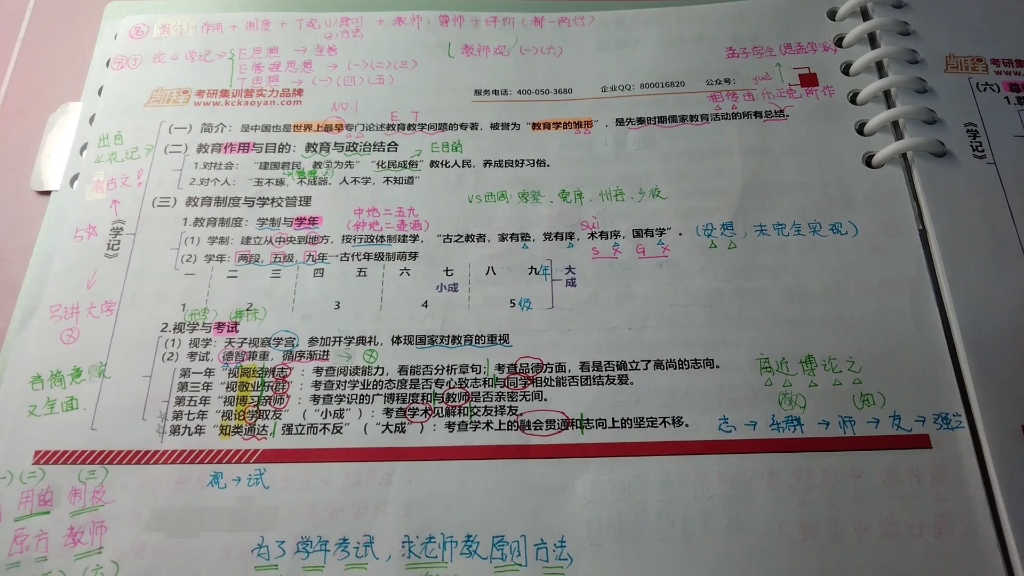 作用 + 制度 +
+ 教师：尊师 + 评价
教师观 (一)(六)
E思想 →
E管理思想 → (一)(二)(三)
T思想 → (一)(四)(五)
孟子学生(思孟学派)
yuè
相传由乐正克所作
凯程 考研集训营实力品牌
www.kckaoyan.com
服务电话：400-050-3680 企业QQ：800016820 公众号：
凯程 考研集
www.kc
NO.1
E T
(一) 简介：是中国也是世界上最早专门论述教育教学问题的专著，被誉为“教育学的雏形”，是先秦时期儒家教育活动的所有总结。
出自《礼记》
(二) 教育作用与目的：教育与政治结合 → E目的
1.对社会：“建国君民，教学为先”“化民成俗”教化人民，养成良好习俗。
2.对个人：“玉不琢，不成器。人不学，不知道”
看古文！
(三) 教育制度与学校管理
VS西周：家塾、党庠、州序、乡校
1.教育制度：学制与学年
中地二五九
suì
(1) 学制：建立从中央到地方，按行政体制建学，“古之教者，家有塾，党有庠，术有序，国有学”。 (设想，未完全实现)
S X G X
(2) 学年：两段，五级，九年—古代年级制萌芽
《学记》
一 二 三 四 五 六 七 八 九年
小成 大成
1 2 3 4 5级
另讲大学
2.视学与考试
(1) 视学：天子视察学宫，参加开学典礼，体现国家对教育的重视
(2) 考试，德智兼重，循序渐进
第一年“视离经辨志”：考查阅读能力，看能否分析章句；考查品德方面，看是否确立了高尚的志向。
第三年“视敬业乐群”：考查对学业的态度是否专心致志和与同学相处能否团结友爱。
第五年“视博习亲师”：考查学识的广博程度和与教师是否亲密无间。
第七年“视论学取友”（“小成”）：考查学术见解和交友择友。
第九年“知类通达，强立而不反”（“大成”）：考查学术上的融会贯通和志向上的坚定不移。
离近博论之
(敬) (知)
志 → 乐群 → 师 → 友 → 强立
言简意赅
又全面.
(二) (三)
视 → 试
用的 制校
原方 教师
(六)
为了学年考试，求老师教原则方法
(六)
《学记》